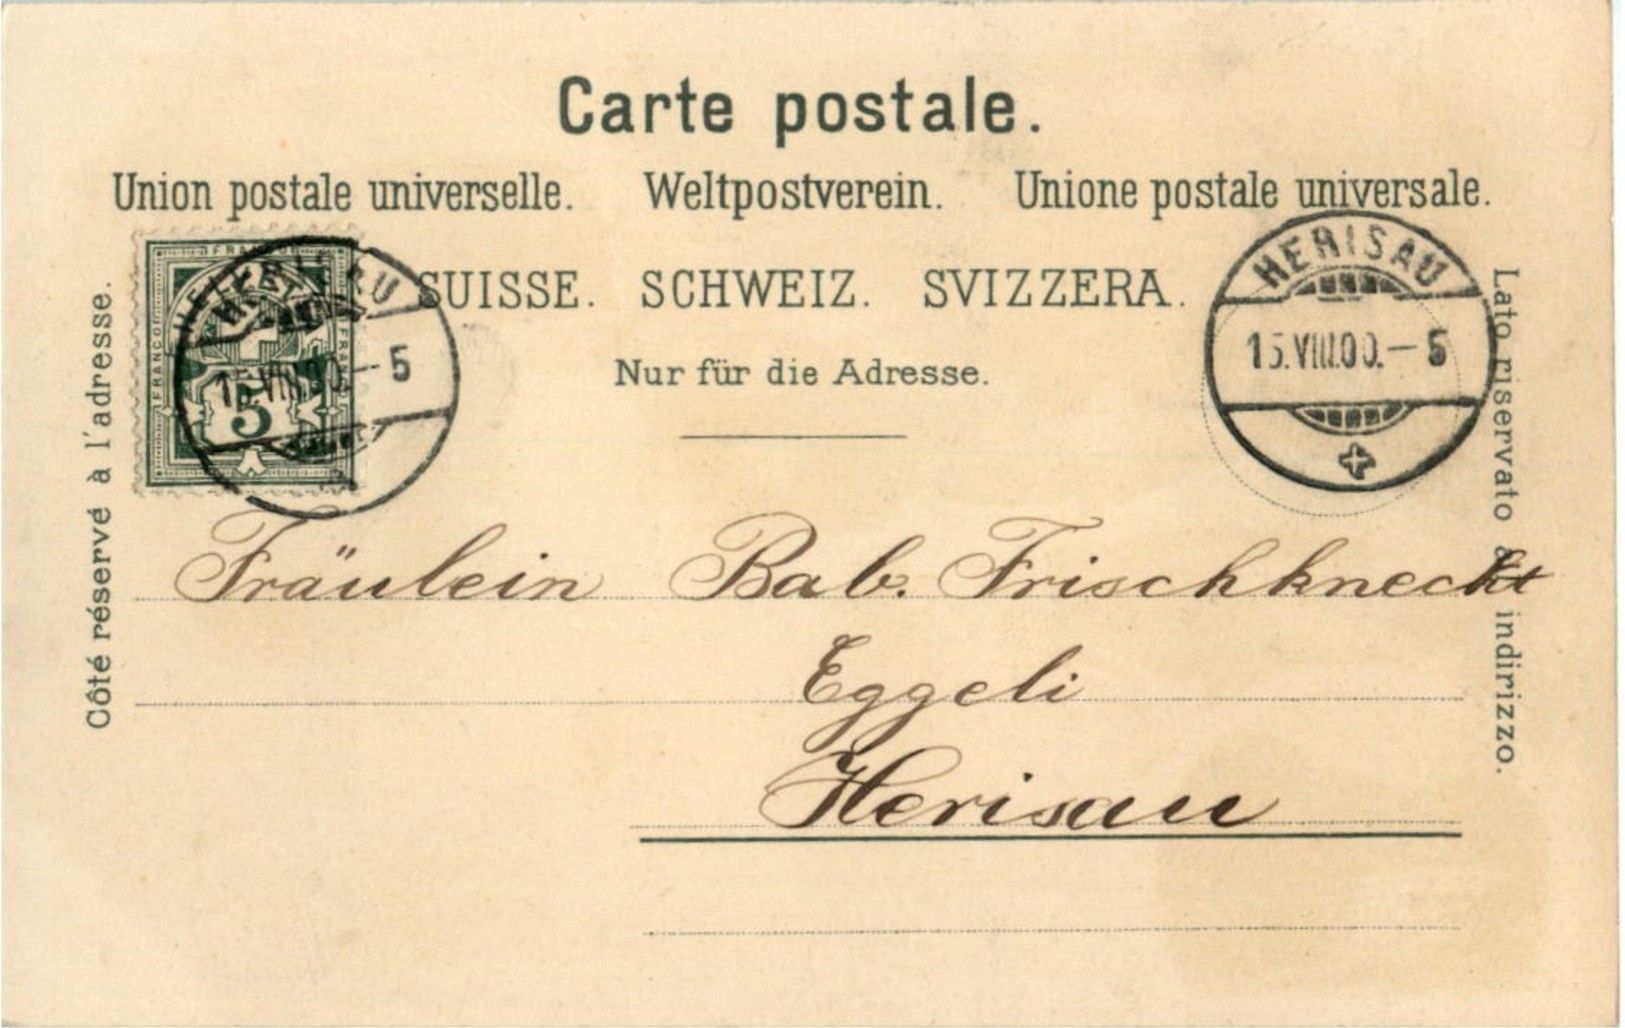 Carte postale.
Union postale universelle. Weltpostverein. Unione postale universale.
SUISSE. SCHWEIZ. SVIZZERA.
Nur für die Adresse.
Côté réservé à l'adresse.
FRANCO
HELVETIA
FRANCO
FRANCO
5
HERISAU
15.VIII.00.–5
HERISAU
15.VIII.00.–5
Lato riservato all' indirizzo.
Fräulein Bab. Frischknecht
Eggeli
Herisau